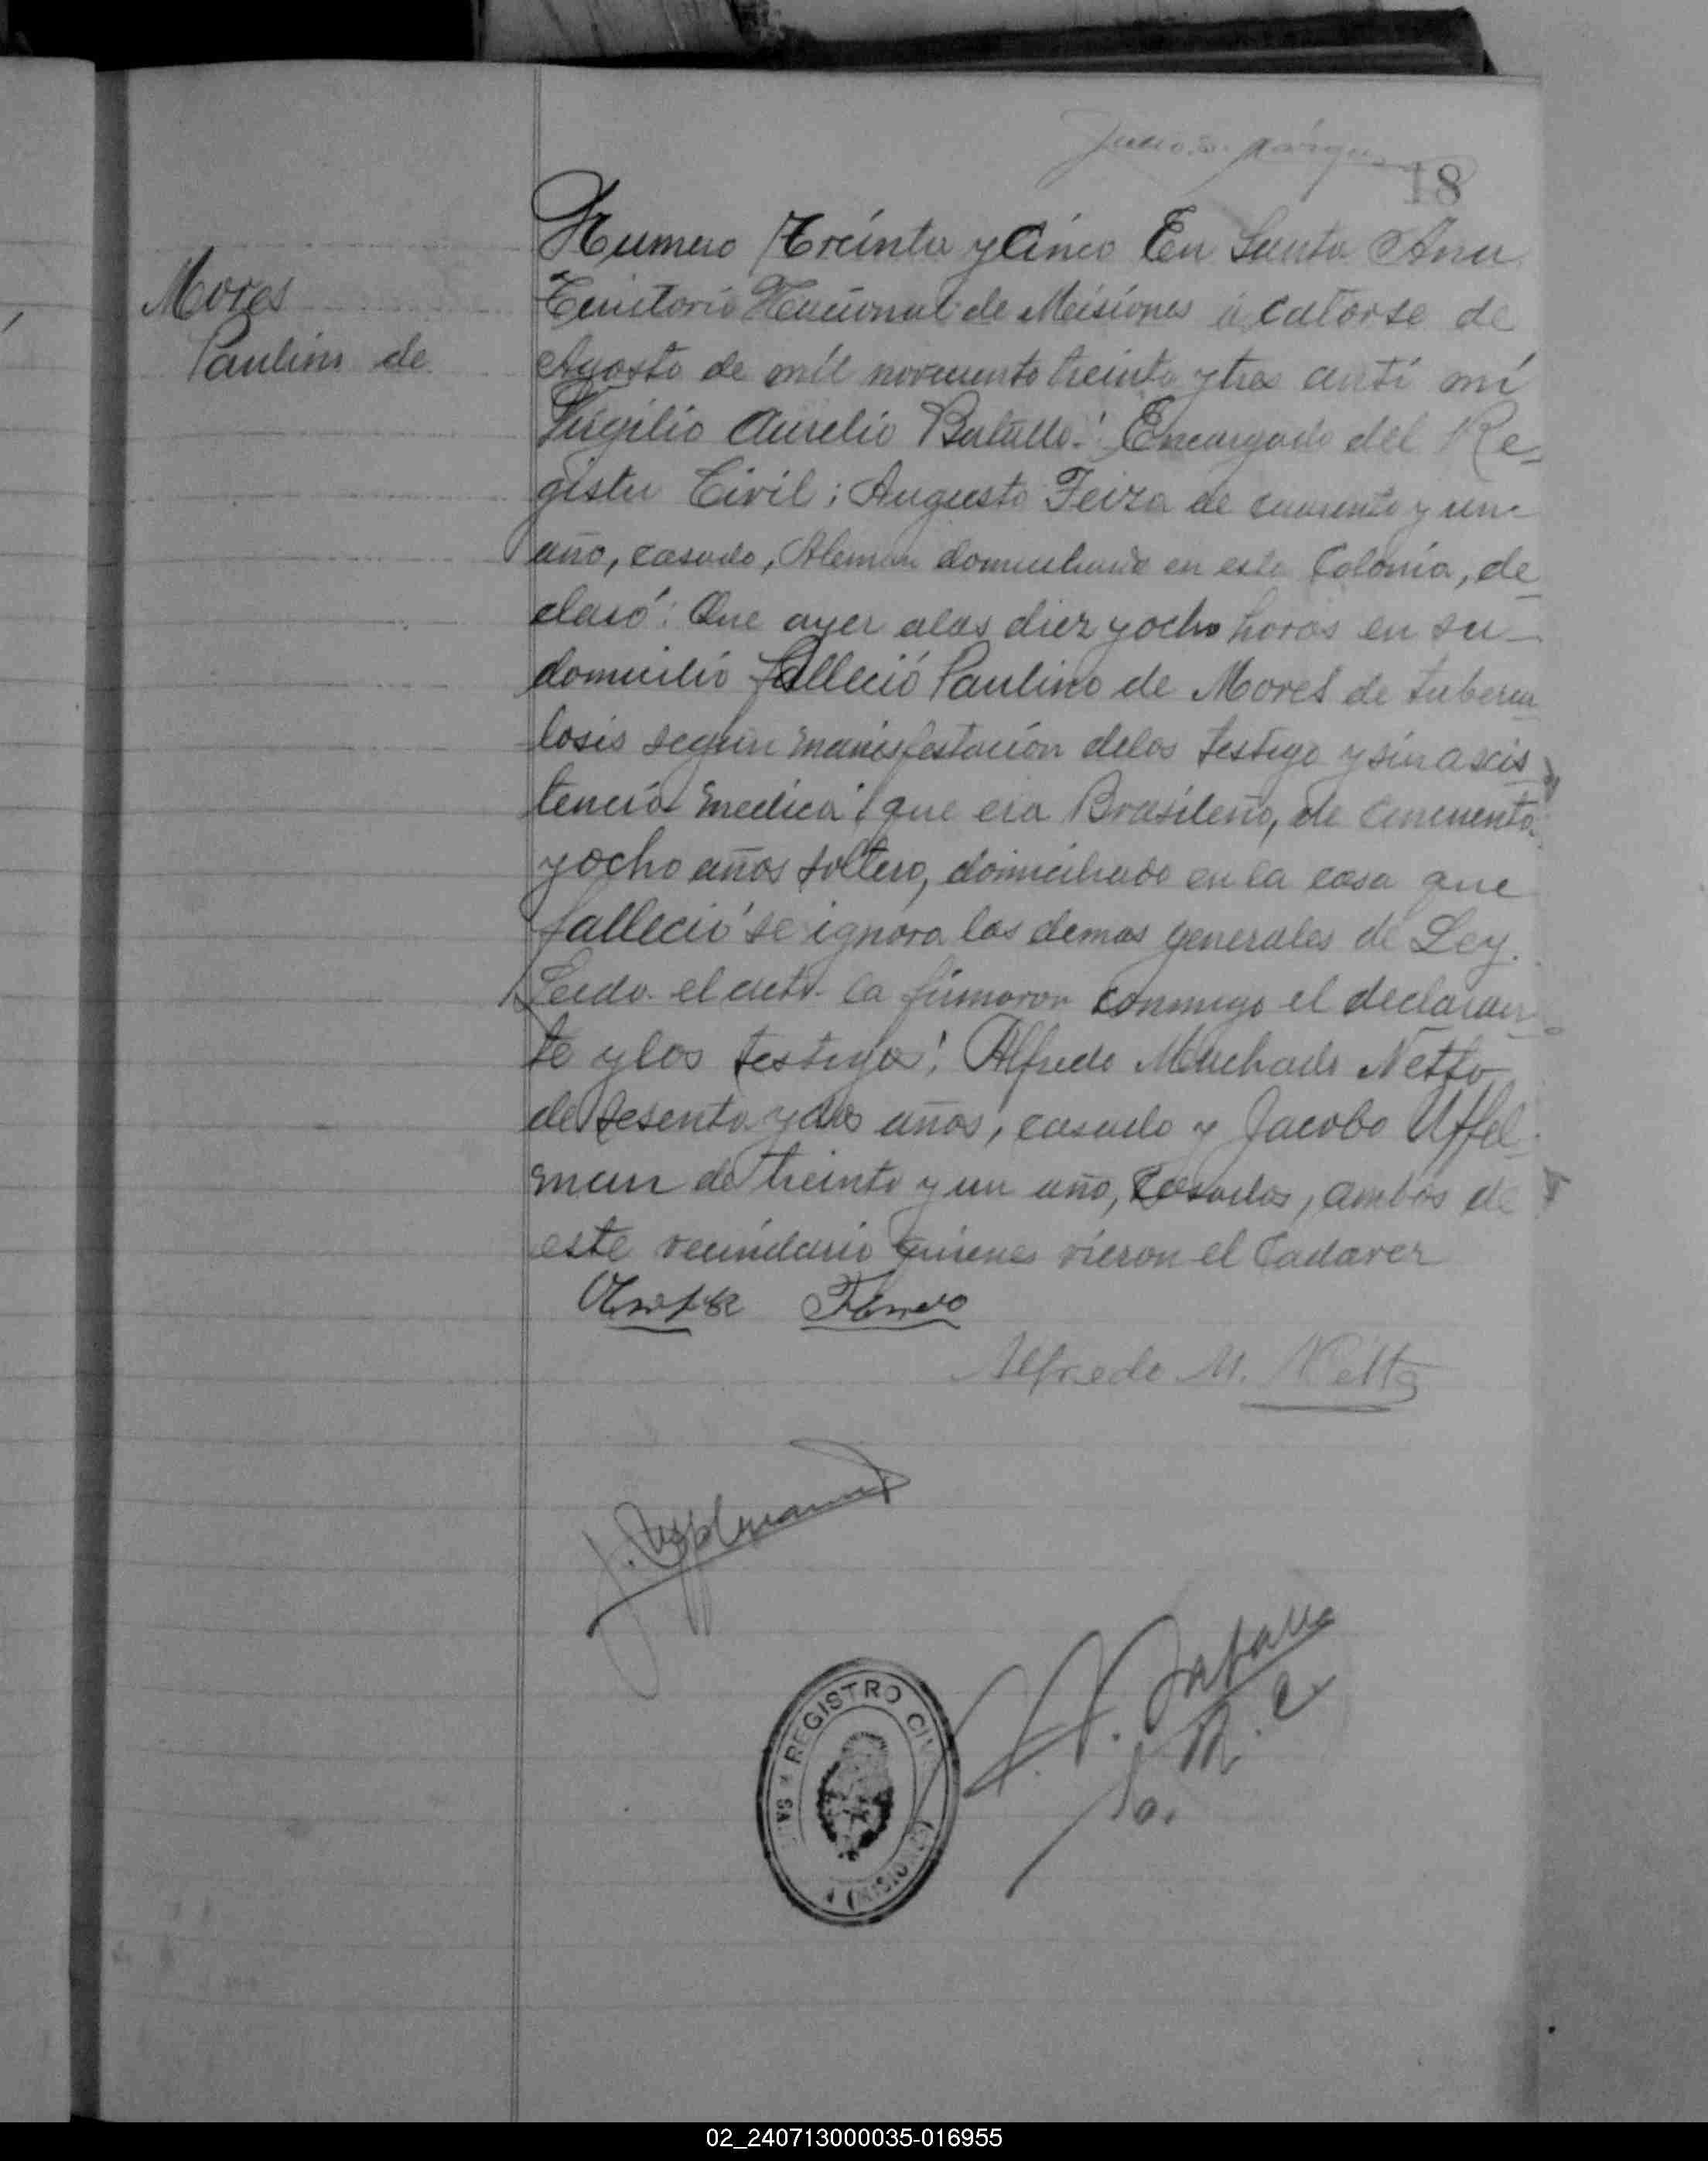 18
Mores
Paulino de
Numero Treinta y Cinco En Santa Ana
Territorio Nacional de Misiones á catorse de
Agosto de mil novecientos treinta y tres anti mí
Virgilio Aurelio Batalla: Encargado del Re-
gistro Civil; Augusto Feiza de cuarenta y un-
año, casado, Aleman domiciliado en esta Colonia, de-
claró: Que ayer alas diez y ocho horas en su-
domicilio falleció Paulino de Mores de tubercu-
losis según manisfestación delos testigo y sin axis
tencia medica; que era Brasileño, de cincuenta
y ocho años soltero, domiciliado en la casa que
falleció se ignora las demas generales de Ley.
Leida el acta la firmaron conmigo el declaran-
te y los testigos: Alfredo Machado Netto
de sesenta y dos años, casado y Jacobo Uffel-
man de treinta y un año, casados, ambos de
este vecindario quienes vieron el Cadaver
Alfredo M. Netto
J. Uffelmann
V. A. Batalla
REGISTRO CIVIL
(MISIONES)